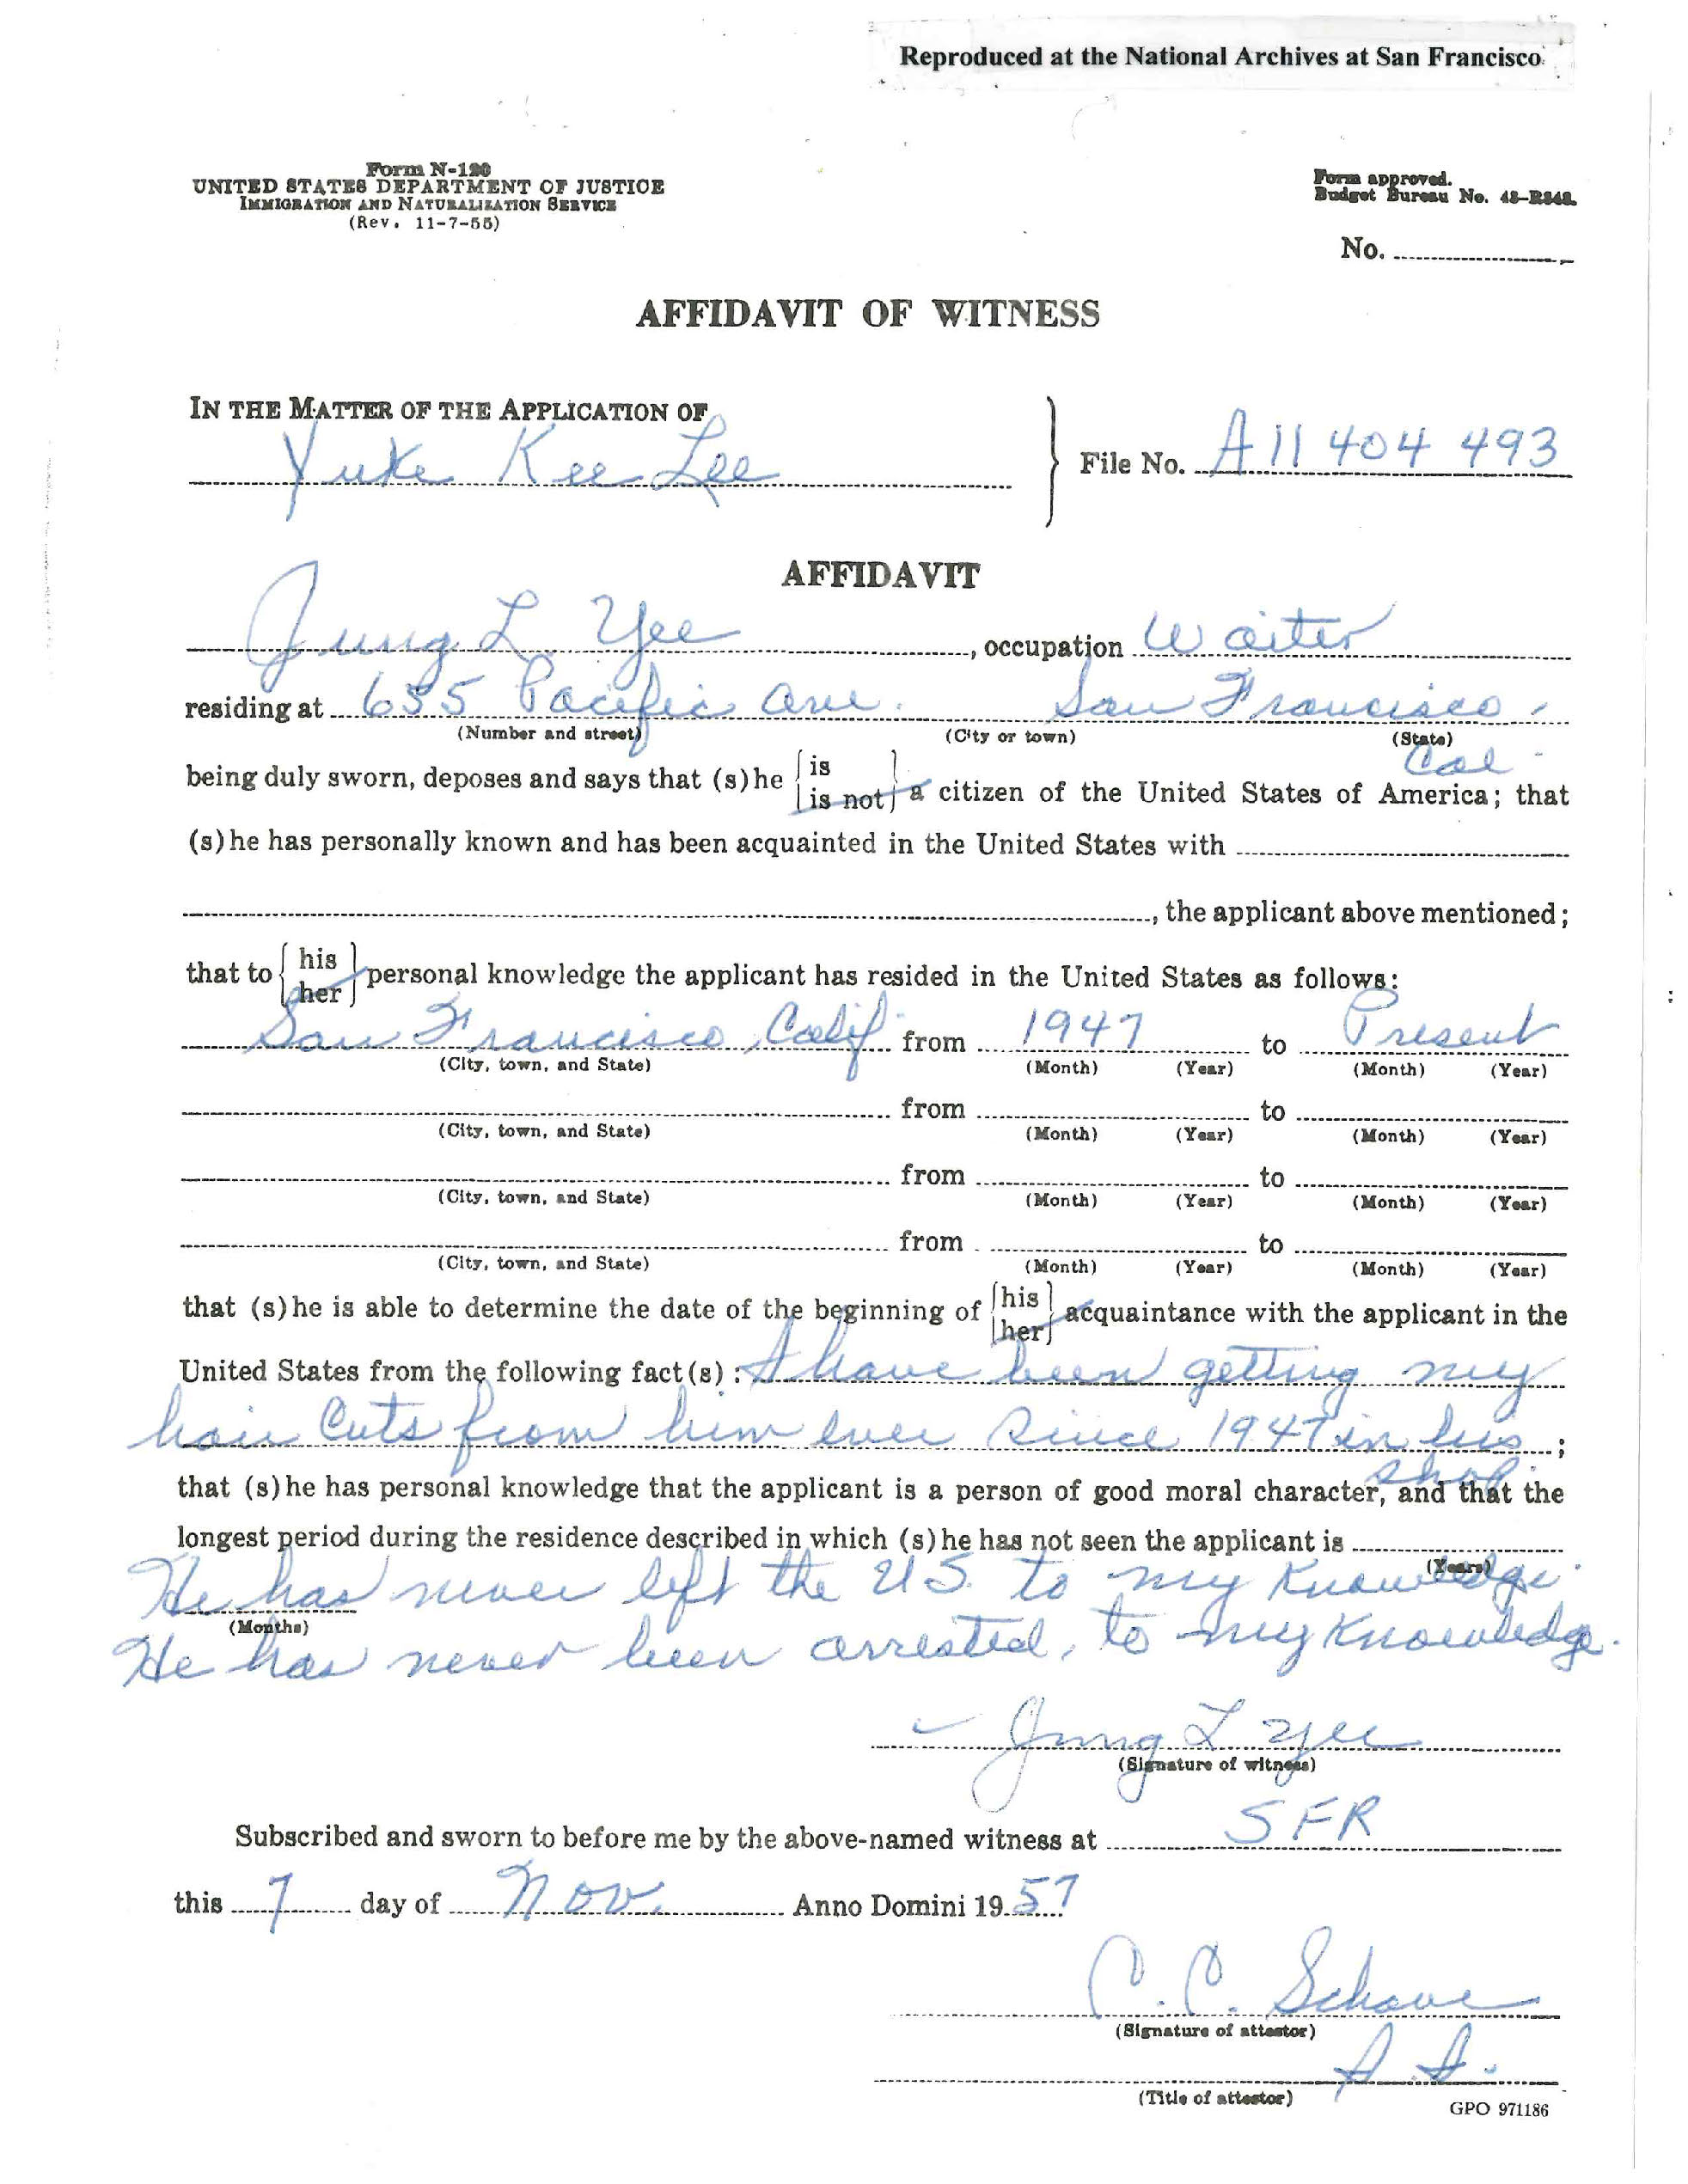 Reproduced at the National Archives at San Francisco
Form N-120
UNITED STATES DEPARTMENT OF JUSTICE
IMMIGRATION AND NATURALIZATION SERVICE
(Rev. 11-7-55)
Form approved.
Budget Bureau No. 43-R343.
No.
AFFIDAVIT OF WITNESS
IN THE MATTER OF THE APPLICATION OF
Yuke Kee Lee
File No. A11 404 493
AFFIDAVIT
Jung L Yee, occupation Waiter
residing at 655 Pacific Ave. San Francisco,
(Number and street) (City or town) (State)
Cal
being duly sworn, deposes and says that (s)he {is / is not} a citizen of the United States of America; that
(s)he has personally known and has been acquainted in the United States with
, the applicant above mentioned;
that to {his / her} personal knowledge the applicant has resided in the United States as follows:
San Francisco, Calif. from 1947 to Present
(City, town, and State) (Month) (Year) (Month) (Year)
from to
(City, town, and State) (Month) (Year) (Month) (Year)
from to
(City, town, and State) (Month) (Year) (Month) (Year)
from to
(City, town, and State) (Month) (Year) (Month) (Year)
that (s)he is able to determine the date of the beginning of {his / her} acquaintance with the applicant in the
United States from the following fact(s): I have been getting my
hair cuts from him ever since 1947 in his ;
shop.
that (s)he has personal knowledge that the applicant is a person of good moral character, and that the
longest period during the residence described in which (s)he has not seen the applicant is
(Years)
He has never left the U.S. to my knowledge.
(Months)
He has never been arrested, to my knowledge.
Jung L Yee
(Signature of witness)
Subscribed and sworn to before me by the above-named witness at SFR
this 7 day of Nov. Anno Domini 1957
C. C. Schave
(Signature of attestor)
(Title of attestor)
GPO 971186